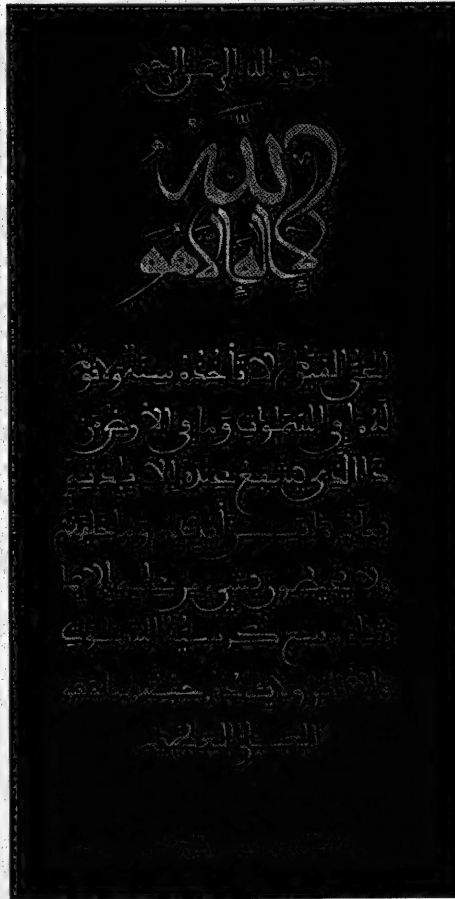 بسم الله الرحمن الرحيم
اللَّهُ
لَا إِلَهَ إِلَّا هُوَ
الحي القيوم لا تأخذه سنة ولا نوم
له ما في السموات وما في الأرض من
ذا الذي يشفع عنده إلا بإذنه
يعلم ما بين أيديهم وما خلفهم
ولا يحيطون بشيء من علمه إلا بما
شاء وسع كرسيه السموات
والأرض ولا يئوده حفظهما وهو
العلي العظيم